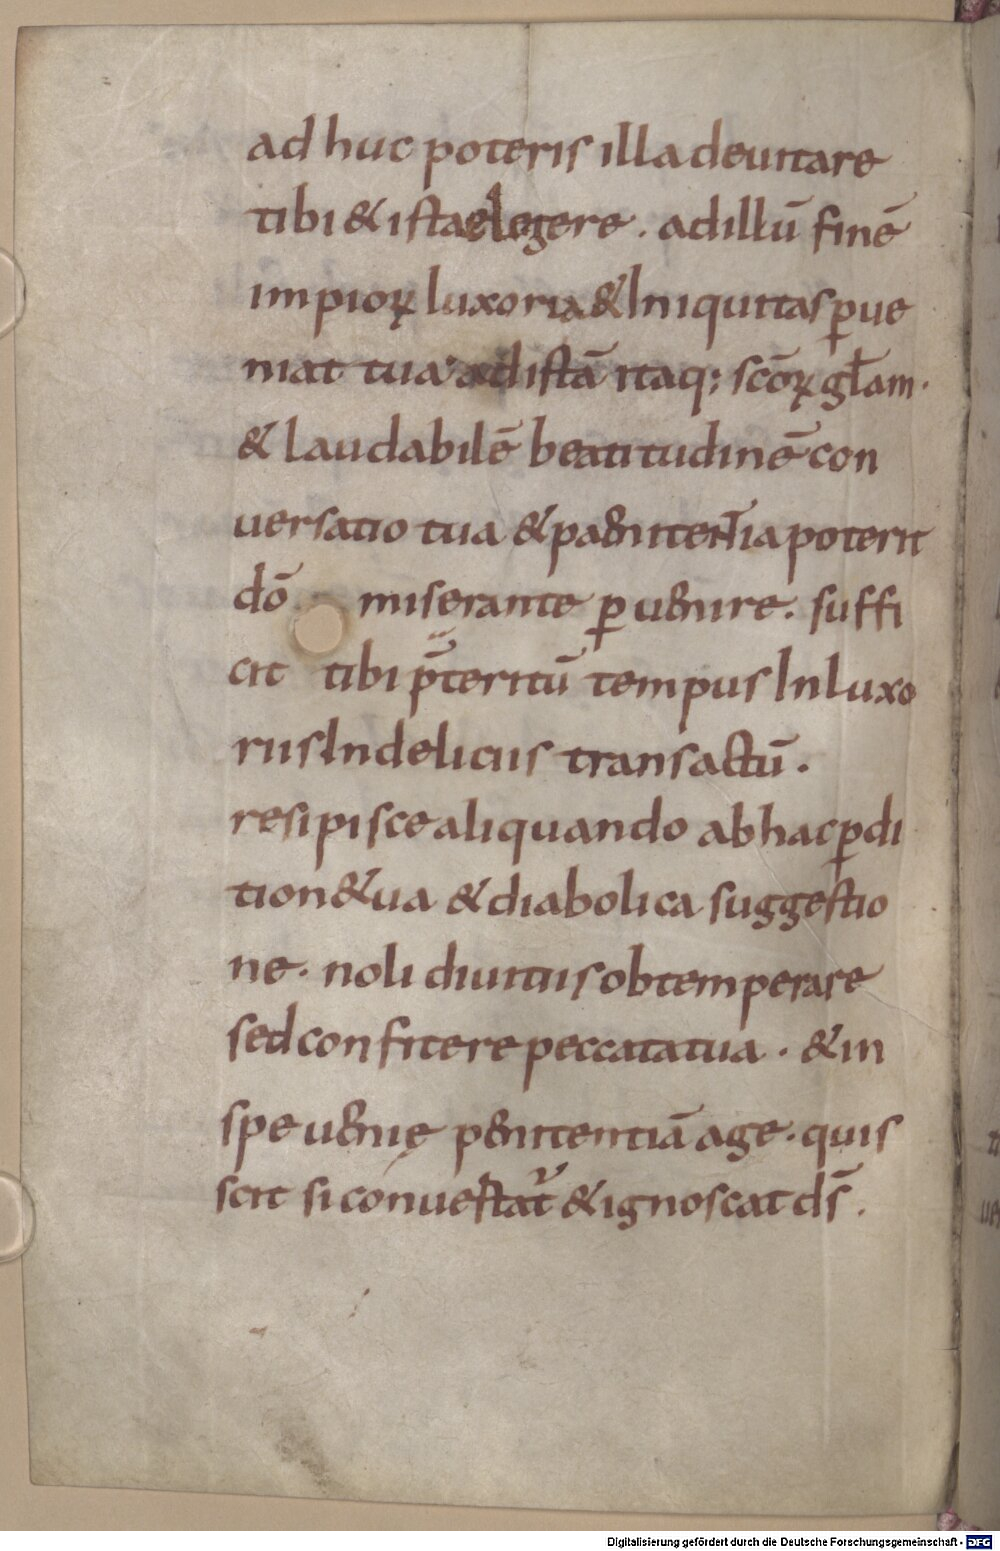 ad huc poteris illa deuitare
tibi & ista elegere . ad illū finē
impioꝝ luxoria & Iniquitas ꝑue
niat tua · ad istā itaq; scōꝝ głam ·
& laudabilē beatitudinē con
uersatio tua & paenitentia poterit
dō miserante ꝑuenire . suffi
cit tibi p̄teritū tempus In luxo
riis In deliciis transactū .
resipisce aliquando ab hac ꝑdi
tion& ua & diabolica suggestio
ne · noli diutius obtemperare
sed confitere peccata tua · & in
spe uenię penitentiā age · quis
scit si conuertat̄ & ignoscat ds̄ .
Digitalisierung gefördert durch die Deutsche Forschungsgemeinschaft - DFG